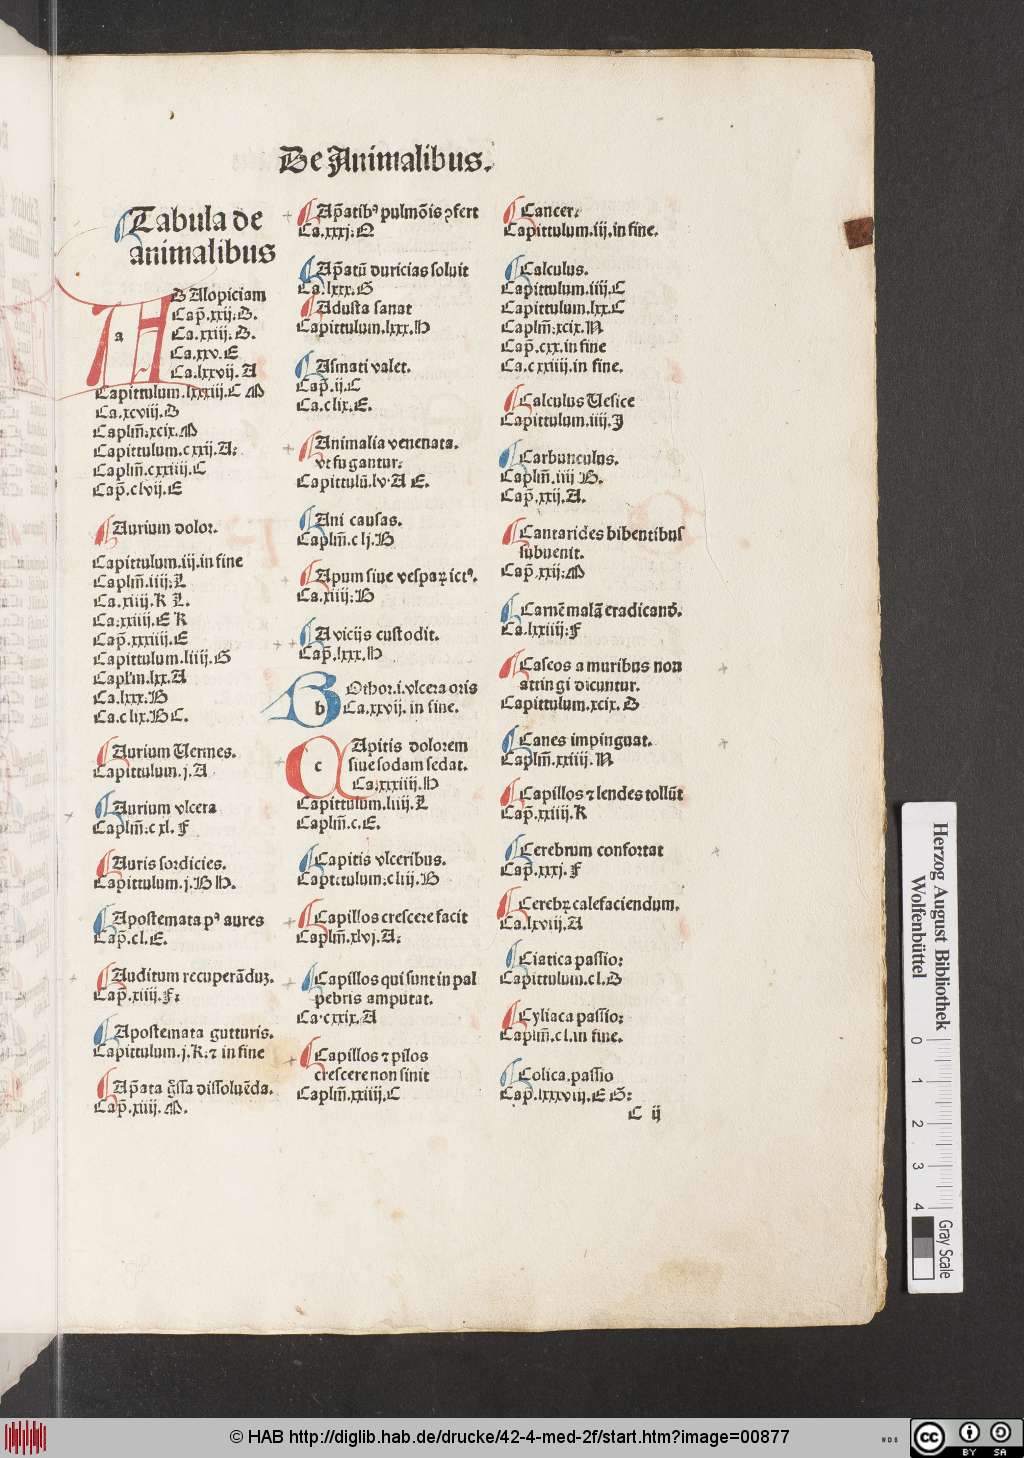 De Animalibus.
Tabula de
animalibus
a
D Alopiciam
Cap̃.xxij:B.
Ca.xxiij:B.
Ca.xxv.E
Ca.lxxvij.A
Capittulum.lxxxiij.C M
Ca.xcviij.B
Caplm̃:xcix.M
Capittulum.cxxij.A:
Caplm̃.cxxiiij.C
Cap̃.clvij.E
Aurium dolor.
Capittulum.iij.in fine
Caplm̃.iiij:L
Ca.xiiij.K L.
Ca:xxiiij.E K
Cap̃.xxxiiij.E
Capittulum.liiij.G
Caplm̃.lxx.A
Ca.lxxx:H
Ca.clix.H C.
Aurium Uermes.
Capittulum.j.A
Aurium vlcera
Caplm̃:cxl.F
Auris sordicies.
Capittulum.j.H H.
Apostemata pꝰ aures
Cap̃.cl.E.
Auditum recuperãduz.
Cap̃.xiiij.F:
Apostemata gutturis.
Capittulum.j.K:⁊ in fine
Ap̃ata g̃ssa dissoluẽda.
Cap̃.xiiij.M.
Ap̃atibꝰ pulmõis ꝯfert
Ca.xxxj:Q
Ap̃atũ duricias soluit
Ca.lxxx:G
Adusta sanat
Capittulum.lxxx.H
Asmati valet.
Cap̃.ij.C
Ca.clix.E.
Animalia venenata.
vt fugantur:
Capittulũ.lv.A E.
Ani causas.
Caplm̃.clj.H
Apum siue vespaꝝ ictꝰ.
Ca.xiiij:H
A vicijs custodit.
Cap̃.lxxx.H
b
Othor.i.vlcera oris
Ca.xxvij. in fine.
c
Apitis dolorem
siue sodam sedat.
Ca:xxxiiij.H
Capittulum.liiij.L
Caplm̃.c.E.
Capitis vlceribus.
Capittulum:cliij.H
Capillos crescere facit
Caplm̃.xlvj.A:
Capillos qui sunt in pal
pebris amputat.
Ca.cxxix.A
Capillos ⁊ pilos
crescere non sinit
Caplm̃.xxiiij.C
Cancer:
Capittulum.iij.in fine.
Calculus.
Capittulum.iiij.C
Capittulum.lxx.C
Caplm̃:xcix.N
Cap̃.cxx.in fine
Ca.cxxiiij.in fine.
Calculus Uesice
Capittulum.iiij.J
Carbunculus.
Caplm̃.iiij H.
Cap̃.xxij.A.
Cantarides bibentibus
subuenit.
Cap̃.xxij:M
Carnẽ malã eradicand̃.
Ca.lxxiiij:F
Caseos a muribus non
attingi dicuntur.
Capittulum.xcix.B
Canes impinguat.
Caplm̃.xxiiij.N
Capillos ⁊ lendes tollũt
Cap̃.xxiiij.K
Cerebrum confortat
Cap̃.xxxj.F
Cerebꝝ calefaciendum.
Ca.lxviij.A
Ciatica passio:
Capittulum.cl.B
Cyliaca passio:
Caplm̃.cl.in fine.
Colica.passio
Cap̃.lxxxviij.E G:
C ij
Herzog August Bibliothek
Wolfenbüttel
0 1 2 3 4
Gray Scale
© HAB http://diglib.hab.de/drucke/42-4-med-2f/start.htm?image=00877
WDB
cc BY SA